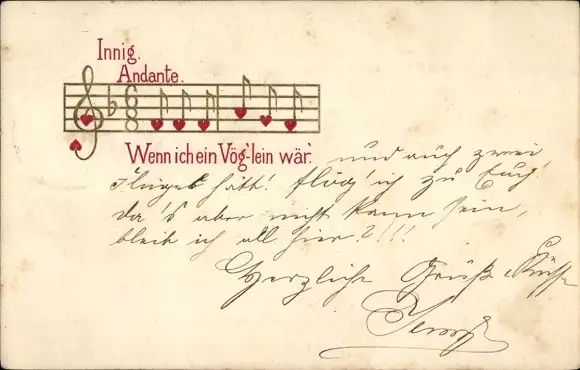 Innig.
Andante.
6
8
Wenn ich ein Vög'lein wär'.
und auch zwei
Flügel hätt'! flög' ich zu Euch!
da's aber nicht kann sein,
bleib ich all hier?!!!
Herzliche Grüße Küsse